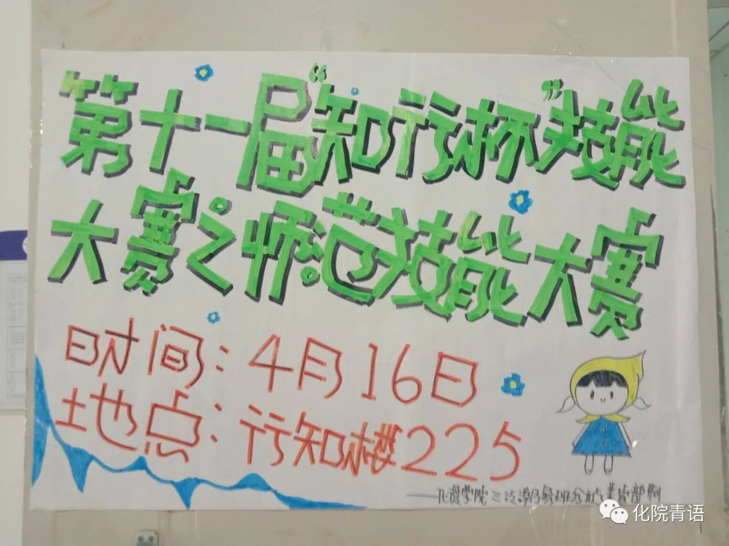 第十一届“知行杯”技能
大赛之师范技能大赛
时间：4月16日
地点：行知楼225
化院青语